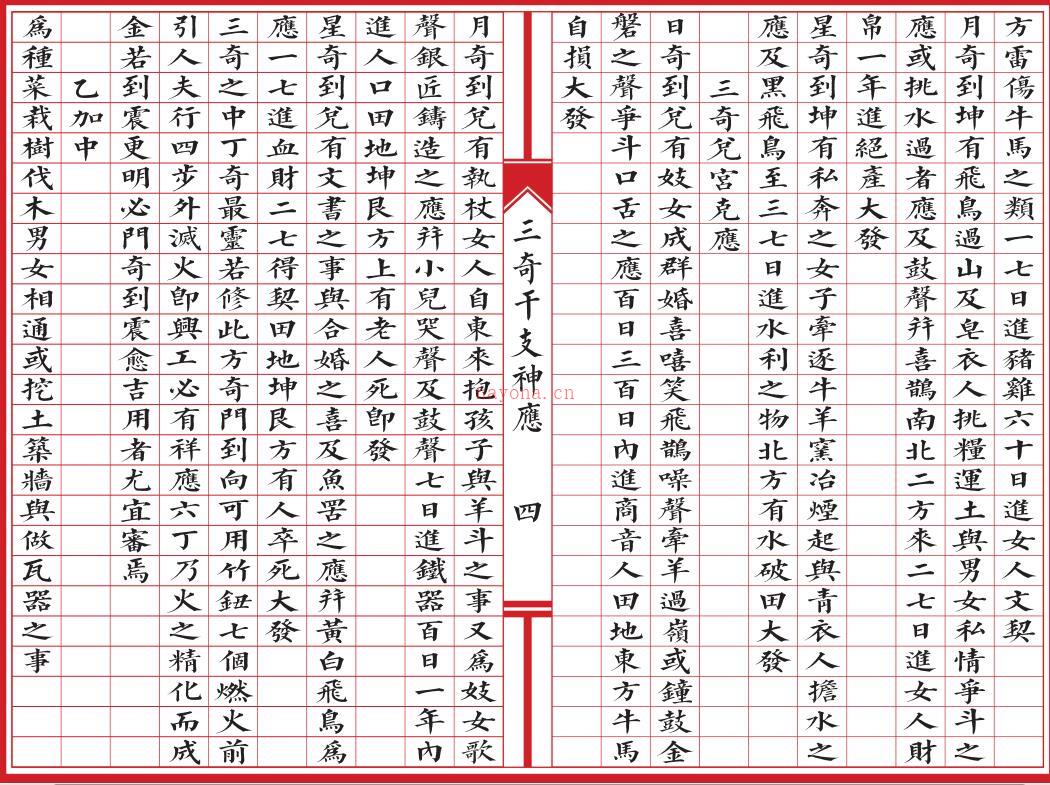 方雷傷牛馬之類一七日進豬雞六十日進女人文契
月奇到坤有飛鳥過山及皂衣人挑糧運土與男女私情爭斗之
應或挑水過者應及鼓聲并喜鵲南北二方來二七日進女人財
帛一年進絕產大發
星奇到坤有私奔之女子牽逐牛羊窯冶煙起與青衣人擔水之
應及黑飛鳥至三七日進水利之物北方有水破田大發
三奇兌宮克應
日奇到兌有妓女成群婚喜嘻笑飛鵲噪聲牽羊過嶺或鐘鼓金
磐之聲爭斗口舌之應百日三百日內進商音人田地東方牛馬
自損大發
三奇干支神應 四
月奇到兌有執杖女人自東來抱孩子與羊斗之事又為妓女歌
聲銀匠鑄造之應并小兒哭聲及鼓聲七日進鐵器百日一年內
進人口田地坤艮方上有老人死即發
星奇到兌有文書之事與合婚之喜及魚罟之應并黃白飛鳥為
應一七進血財二七得契田地坤艮方有人卒死大發
三奇之中丁奇最靈若修此方奇門到向可用竹鈕七個燃火前
引人夫行四步外滅火即興工必有祥應六丁乃火之精化而成
金若到震更明必門奇到震愈吉用者尤宜審焉
乙加中
為種菜栽樹伐木男女相通或挖土築牆與做瓦器之事
nayona.cn